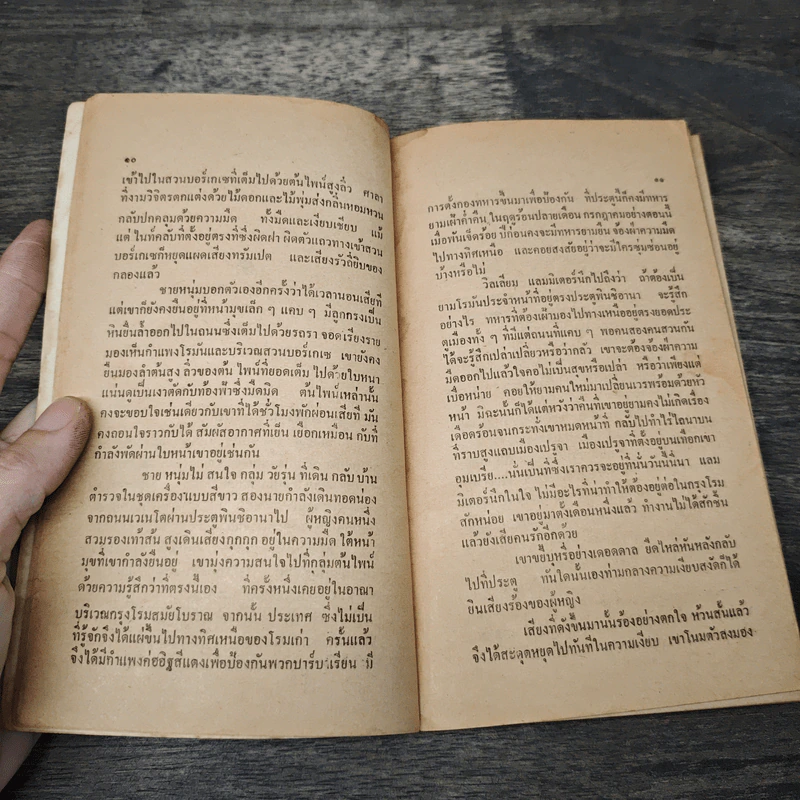 ๑๐
เข้าไปในสวนบอร์เกเซที่เต็มไปด้วยต้นไพน์สูงลิ่ว ศาลา
ที่งามวิจิตรตกแต่งด้วยไม้ดอกและไม้พุ่มส่งกลิ่นหอมหวน
กลับปกคลุมด้วยความมืด ทั้งมืดและเงียบเชียบ แม้
แต่ ไนท์คลับที่ตั้งอยู่ตรงที่ซึ่งผิดฝา ผิดตัวแถวทางเข้าสวน
บอร์เกเซก็หยุดแผดเสียงทรัมเปต และเสียงรัวถี่ยิบของ
กลองแล้ว
ชายหนุ่มบอกตัวเองอีกครั้งว่าได้เวลานอนเสียที
แต่เขาก็ยังคงยืนอยู่ที่หน้ามุขเล็ก ๆ แคบ ๆ มีลูกกรงเป็น
หินยื่นล้ำออกไปในถนนซึ่งเต็มไปด้วยรถรา จอดเรียงราย
มองเห็นกำแพงโรมันและบริเวณสวนบอร์เกเซ เขายังคง
ยืนมองลำต้นสูง ลิ่วของต้น ไพน์ที่ยอดเต็ม ไปด้วยใบหนา
แน่นดูเป็นเงาตัดกับท้องฟ้าซึ่งมืดมิด ต้นไพน์เหล่านั้น
คงจะชอบใจเช่นเดียวกับเขาที่ได้ชั่วโมงพักผ่อนเสียที มัน
คงถอนใจราวกับได้ สัมผัสอากาศที่เย็น เยือกเหมือน กับที่
กำลังพัดผ่านใบหน้าเขาอยู่เช่นกัน
ชาย หนุ่มไม่ สนใจ กลุ่ม วัยรุ่น ที่เดิน กลับ บ้าน
ตำรวจในชุดเครื่องแบบสีขาว สองนายกำลังเดินทอดน่อง
จากถนนเวเนโตผ่านประตูพินซิอานาไป ผู้หญิงคนหนึ่ง
สวมรองเท้าส้น สูงเดินเสียงกุกกุก อยู่ในความมืด ใต้หน้า
มุขที่เขากำลังยืนอยู่ เขามุ่งความสนใจไปที่กลุ่มต้นไพน์
ด้วยความรู้สึกว่าที่ตรงนี้เอง ที่ครั้งหนึ่งเคยอยู่ในอาณา
บริเวณกรุงโรมสมัยโบราณ จากนั้น ประเทศ ซึ่งไม่เป็น
ที่รู้จักจึงได้แผ่ขึ้นไปทางทิศเหนือของโรมเก่า ครั้นแล้ว
จึงได้มีกำแพงค่ออิฐสีแดงเพื่อป้องกันพวกบาร์บาเรียน มี
๑๑
การตั้งกองทหารขึ้นมาเพื่อป้องกัน ที่ประตูนี้ก็คงมีทหาร
ยามเฝ้าค่ำคืน ในฤดูร้อนปลายเดือน กรกฎาคมอย่างตอนนี้
เมื่อพันเจ็ดร้อย ปีก่อนคงจะมีทหารยามยืน จ้องฝ่าความมืด
ไปทางทิศเหนือ และคอยสงสัยอยู่ว่าจะมีใครซุ่มซ่อนอยู่
บ้างหรือไม่
วิลเลียม แลมมิเตอร์นึกไปถึงว่า ถ้าต้องเป็น
ยามโรมันประจำหน้าที่อยู่ตรงประตูพินซิอานา จะรู้สึก
อย่างไร ทหารที่ต้องเฝ้ามองไปทางเหนืออยู่ตรงยอดประ
ตูเมืองทั้ง ๆ ที่มีแต่ถนนที่แคบ ๆ พอคนสองคนสวนกัน
ได้จะรู้สึกเปล่าเปลี่ยวหรือว่ากลัว เขาจะต้องจ้องฝ่าความ
มืดออกไปแล้วใจคอไม่เป็นสุขหรือเปล่า หรือว่าเพียงแต่
เบื่อหน่าย คอยให้ยามคนใหม่มาเปลี่ยนเวรพร้อมด้วยหัว
หน้า มิฉะนั้นก็ได้แต่หวังว่าคืนที่เขาอยู่ยามคงไม่เกิดเรื่อง
เดือดร้อนจนกระทั่งเขาหมดหน้าที่ กลับไปทำไร่ไถนาบน
ที่ราบสูงแถบเมืองเปรูจา เมืองเปรูจาที่ตั้งอยู่บนเทือกเขา
อุมเบรีย....นั่นเป็นที่ซึ่งเราควรจะอยู่ที่นั่นวันนี้นี่นา แลม
มิเตอร์นึกในใจ ไม่มีอะไรที่น่าทำให้ต้องอยู่ต่อในกรุงโรม
สักหน่อย เขาอยู่มาตั้งเดือนหนึ่งแล้ว ทำงานไม่ได้สักชิ้น
แล้วยังเสียคนรักอีกด้วย
เขาขยับบุหรี่อย่างเดือดดาล ยืดไหล่หันหลังกลับ
ไปที่ประตู ทันใดนั้นเองท่ามกลางความเงียบสงัดก็ได้
ยินเสียงร้องของผู้หญิง
เสียงที่ดังขึ้นมานั้นร้องอย่างตกใจ ห้วนสั้นแล้ว
จึงได้สะดุดหยุดไปทันทีในความเงียบ เขาโนมตัวลงมอง